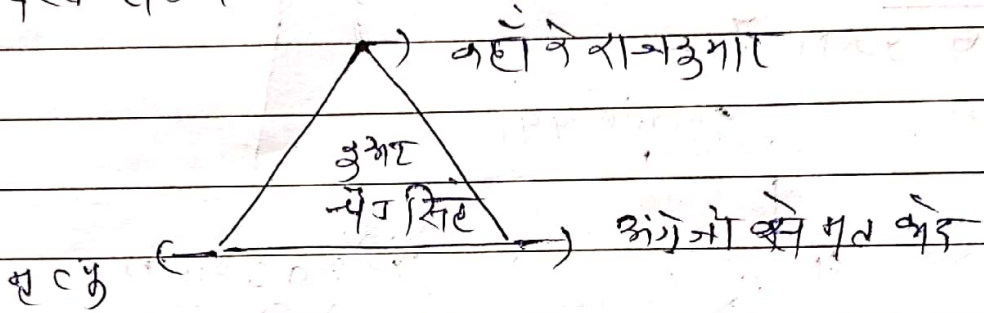 कहाँ के राजकुमार
कुँअर
चैन सिंह
अंग्रेजों से मतभेद
मृत्यु